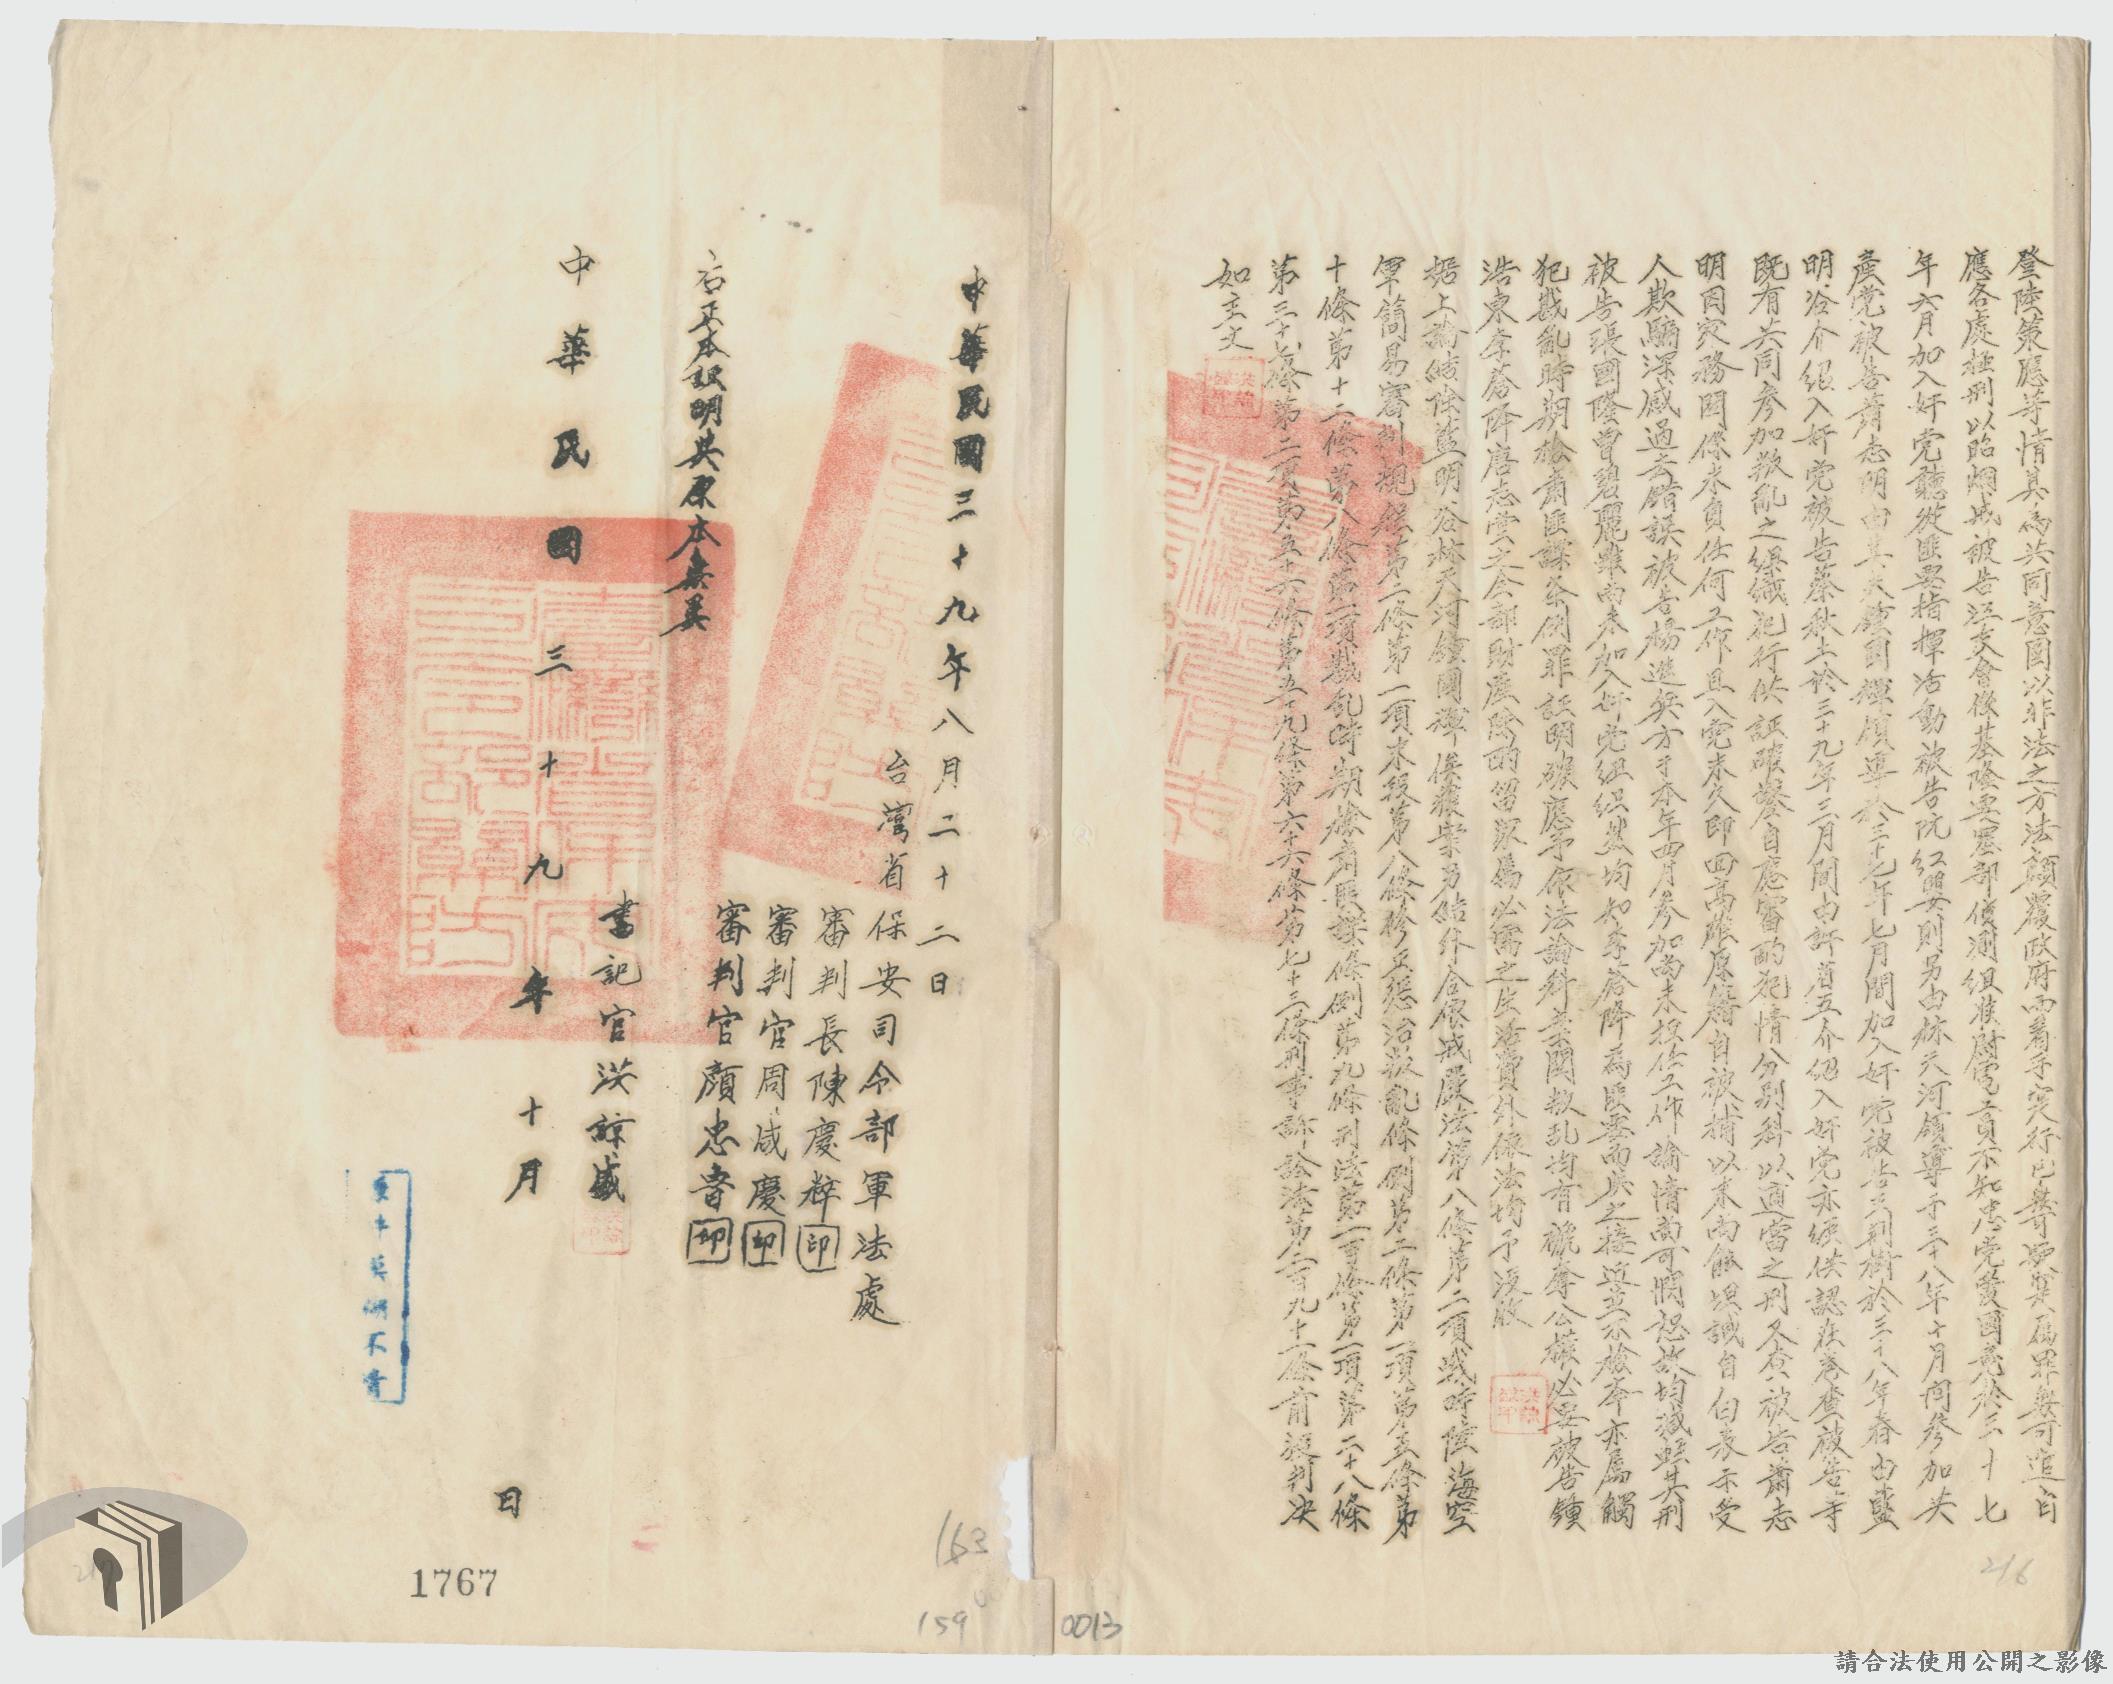 登陸策應等情其為共同意圖以非法之方法顛覆政府而着手实行已無可疑寔属罪無可逭自
應各處極刑以昭烱戒被告汪文會係基隆要塞部偵測組准尉寔員不知忠党愛國竟於三十七
年六月加入奸党聽從匪要指揮活動被告阮紅嬰則另由林天河領導于三十八年十月间參加共
產党被告蕭志明由其夫鐘國輝領導於三十七年七月間加入奸党被告王荊樹於三十八年春由藍
明谷介紹入奸党被告蔡秋土於三十九年三月間由許省五介紹入奸党亦經供認在卷查被告等
既有共同參加叛亂之組織犯行供証確鑿自應審酌犯情分別科以適當之刑又查被告蕭志
明因家務関係未負任何工作且入党未久即回高雄原籍自被捕以来尚能坦誠自白表示受
人欺騙深感過去錯誤被告楊進興方于本年四月參加尚未担任工作論情尚可憫恕故均減輕其刑
被告張國隆曾碧麗雖尚未加入奸党組织然均知李蒼降為匪要而與之接近並不檢举亦属觸
犯戡亂時期檢肅匪諜条例罪証明確應予依法論科案関叛乱均有褫奪公權必要被告鍾
浩東李蒼降唐志堂之全部財產除酌留家属必需之生活費外依法均予没收
据上論結除藍明谷林天河鐘國輝俟獲案另結外合依戒嚴法第八條第二項戰時陸海空
軍簡易審判規程第二條第一項末段第八條修正懲治叛亂條例第二條第一項第五條第
十條第十二條第八條第一項戡乱時期檢肅匪諜條例第九條刑法第二百條第一項第二十八條
第三十七條第二項第五十六條第五十九條第六十六條第七十三條刑事訴訟法第二百九十一條前段判决
如主文
中華民國三十九年八月二十二日
台灣省保安司令部軍法處
審判長陳慶粹印
審判官周咸慶印
審判官顏忠魯印
右正本証明與原本無異
書記官洪諒盛
中華民國三十九年十月 日
1767
163
159
0013
216
請合法使用公開之影像